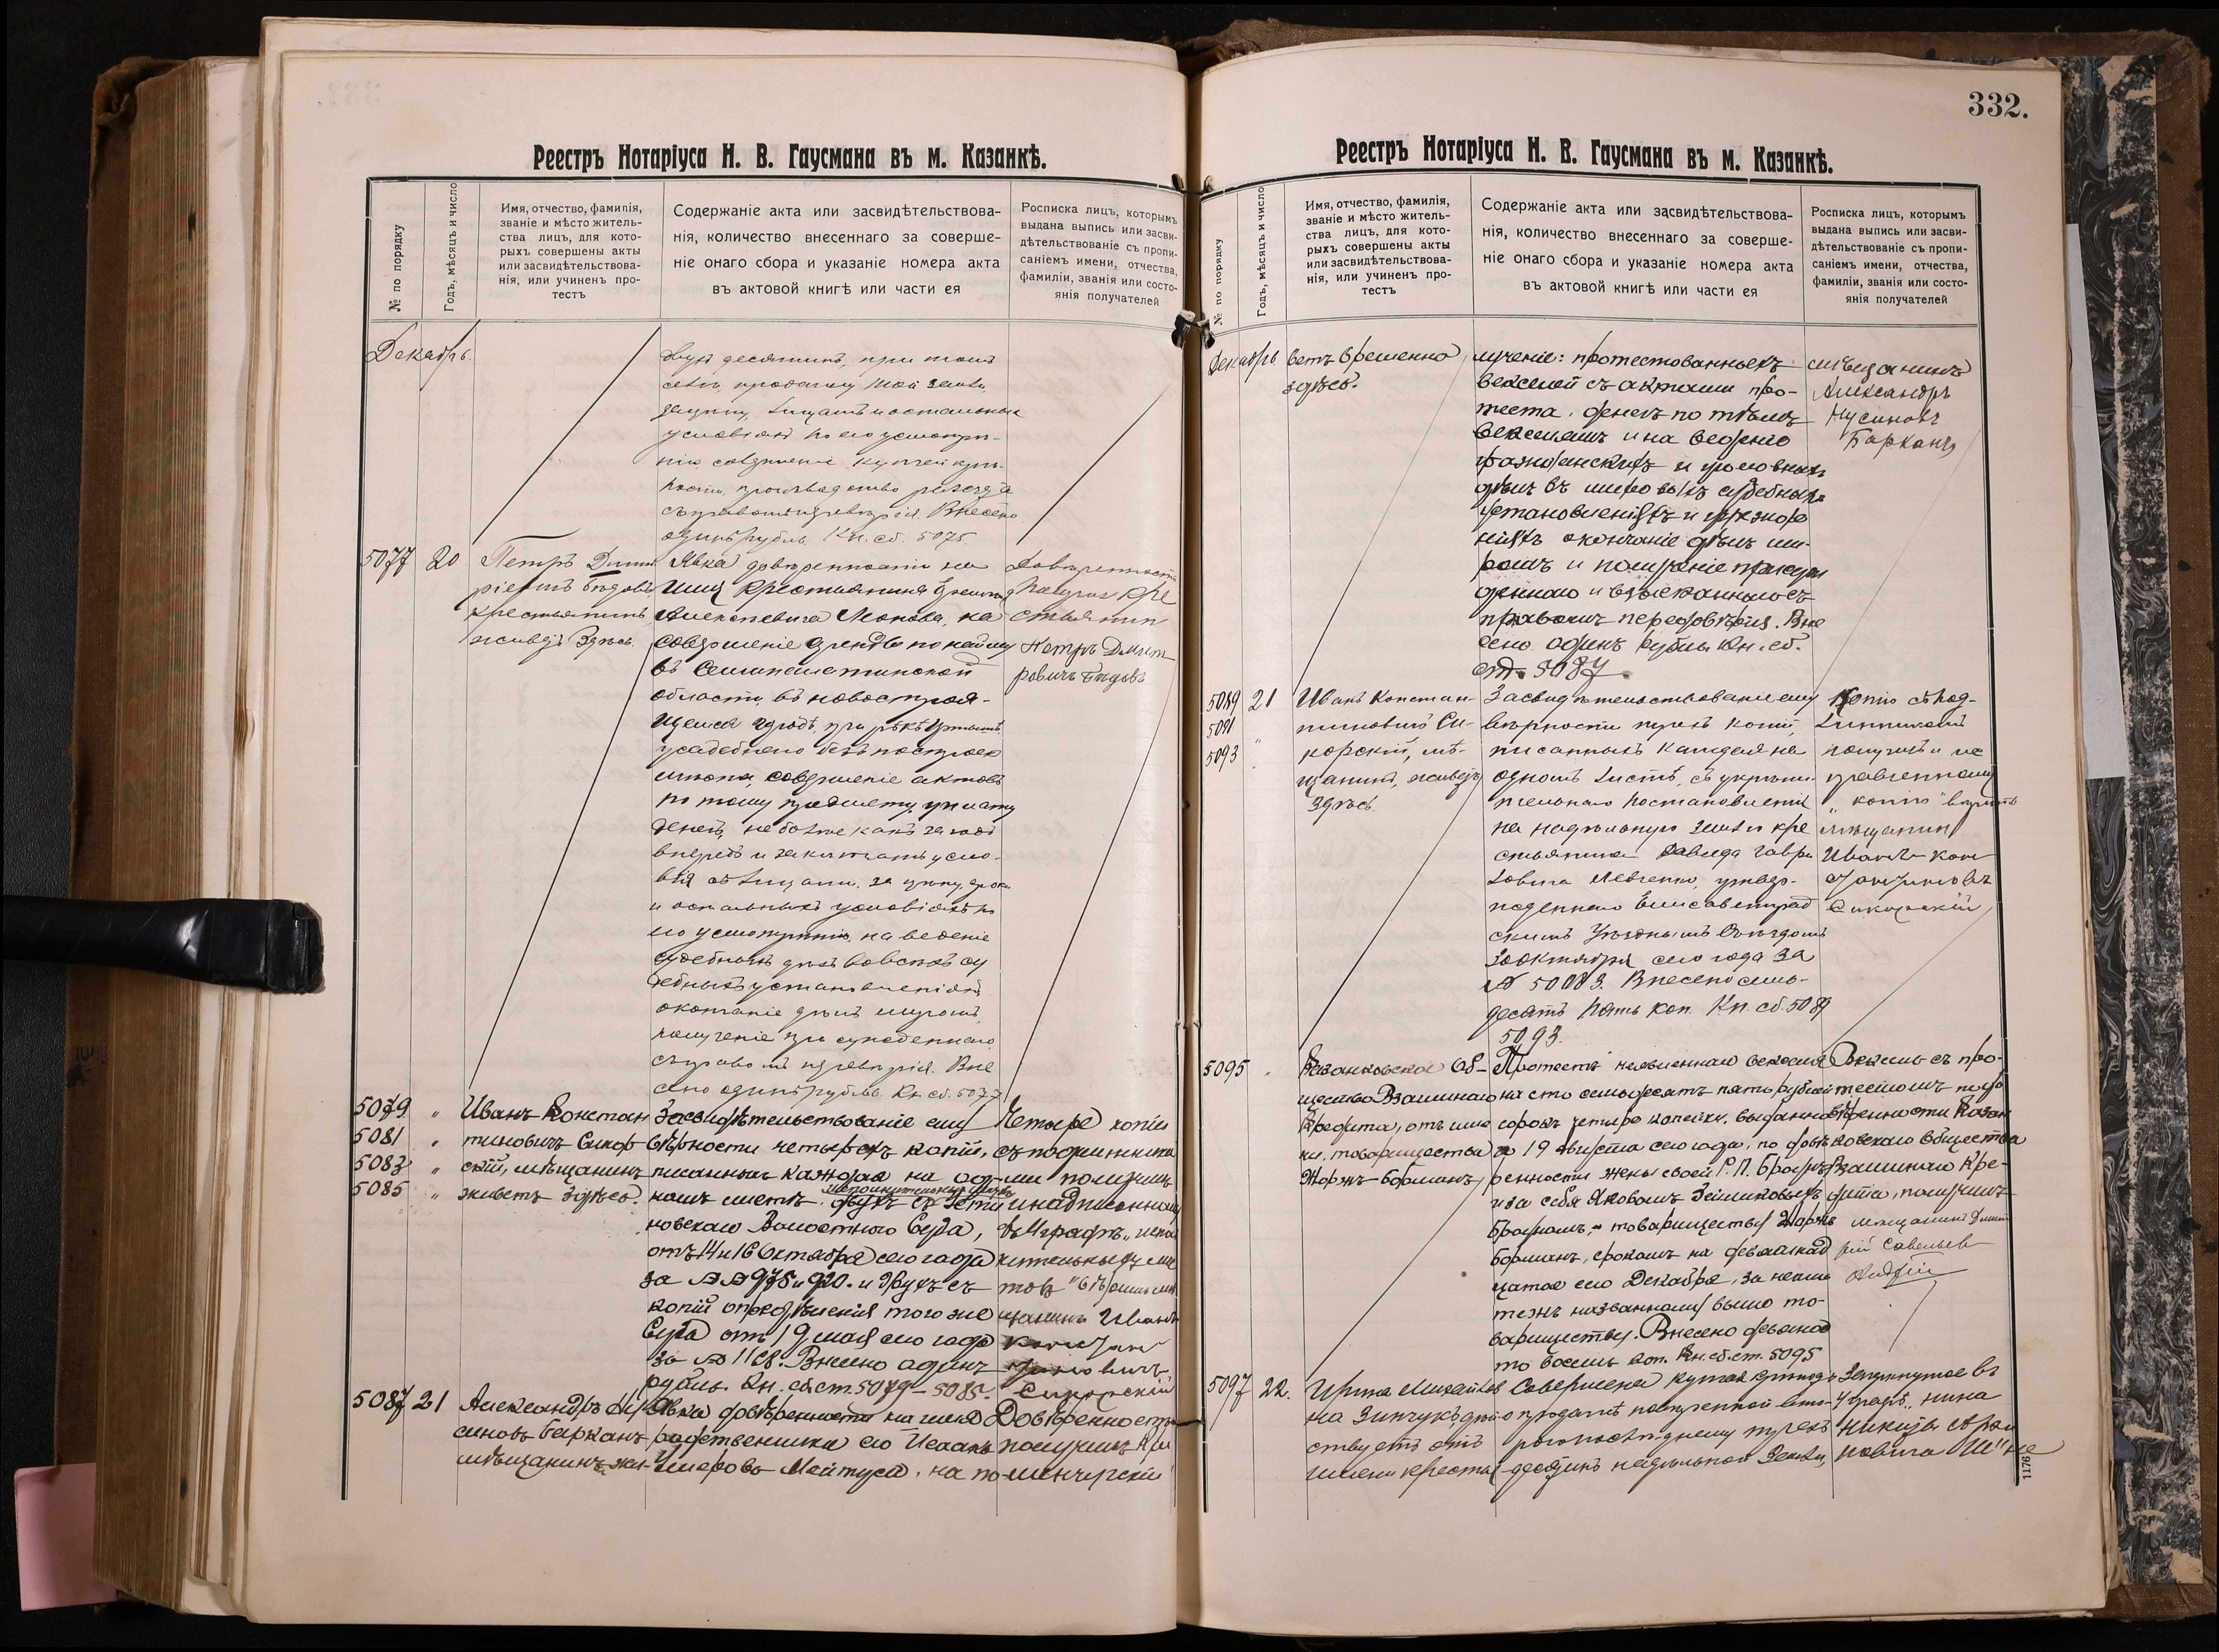 332.
Реестръ Нотаріуса Н. В. Гаусмана въ м. Казанкѣ.
№ по порядку
Годъ, мѣсяцъ и число
Имя, отчество, фамилія,
званіе и мѣсто житель-
ства лицъ, для кото-
рыхъ совершены акты
или засвидѣтельствова-
нія, или учиненъ про-
тестъ
Содержаніе акта или засвидѣтельствова-
нія, количество внесеннаго за соверше-
ніе онаго сбора и указаніе номера акта
въ актовой книгѣ или части ея
Росписка лицъ, которымъ
выдана выпись или засви-
дѣтельствованіе съ пропи-
саніемъ имени, отчества,
фамиліи, званія или состо-
янія получателей
Декабрь
двухъ десятинъ, при томъ
продажу той земли
лицамъ и остальныхъ
условіяхъ по его усмотрѣ-
нію совершеніе купчей крѣ-
пости, производство
съ правомъ передовѣрія. Внесено
одинъ рубль Кн. сб. 5075
5077 20
Петръ Дмит-
ріевичъ Бѣдовъ
крестьянинъ
живетъ здѣсь.
Явка довѣренности на
имя крестьянина
Алексѣевича Монова, на
совершеніе аренды по найму
въ Семипалатинской
области, въ новостроя-
щемся городѣ, при рѣкѣ Иртышѣ,
усадебнаго безъ построекъ
совершеніе актовъ
по тому предмету, уплату
денегъ, не болѣе какъ за годъ
впередъ и заключать усло-
вія съ лицами, за цѣну, сроки
и остальныхъ условіяхъ по
его усмотрѣнію, на веденіе
судебныхъ дѣлъ во всѣхъ су
дебныхъ установленіяхъ,
окончаніе дѣлъ миромъ,
полученіе присужденнаго
съ правомъ передовѣрія. Вне
сено одинъ рубль. Кн. сб. 5077
Довѣренность
получилъ кре
стьянин
Петръ Дмит
ровичъ Бѣдовъ
5079 "
5081 "
5083 "
5085 "
Иванъ Констан
тиновичъ Сикор
скій, мѣщанинъ
живетъ здѣсь.
Засвидѣтельствованіе ему
вѣрности четырехъ копій,
писанныхъ каждая на од-
номъ листѣ, двухъ съ
исполнительныхъ листовъ
новскаго Волостного Суда,
отъ 14 и 16 Октября сего года
за №№ 975 и 920. и двухъ съ
копій опредѣленія того же
Суда отъ 19 мая сего года
за № 1168. Внесено одинъ
рубль. Кн. сб. ст. 5079–5085.
Четыре копіи
съ подлинника
ми получилъ
и надписанному
въ 4 графѣ „испол
нительныхъ лис
товъ" вѣрить мѣ
щанинъ Иванъ
Констан
тиновичъ
Сикорскій
5087 21
Александръ Ну
синовъ Барканъ
мѣщанинъ жи-
Явка довѣренности на имя
родственника его Исаака
Меерова Мейтуса, на по-
Довѣренность
получилъ Кре
менчугскій
Реестръ Нотаріуса Н. В. Гаусмана въ м. Казанкѣ.
№ по порядку
Годъ, мѣсяцъ и число
Имя, отчество, фамилія,
званіе и мѣсто житель-
ства лицъ, для кото-
рыхъ совершены акты
или засвидѣтельствова-
нія, или учиненъ про-
тестъ
Содержаніе акта или засвидѣтельствова-
нія, количество внесеннаго за соверше-
ніе онаго сбора и указаніе номера акта
въ актовой книгѣ или части ея
Росписка лицъ, которымъ
выдана выпись или засви-
дѣтельствованіе съ пропи-
саніемъ имени, отчества,
фамиліи, званія или состо-
янія получателей
Декабрь
ветъ временно
здѣсь.
лученіе: протестованныхъ
векселей съ актами про-
теста, денегъ по тѣмъ
векселямъ и на веденіе
гражданскихъ и уголовныхъ
дѣлъ въ мировыхъ судебныхъ
установленіяхъ и учрежде
ніяхъ окончаніе дѣлъ ми-
ромъ и полученіе присуж
деннаго и взысканнаго съ
правомъ передовѣрія. Вне
сено одинъ рубль Кн. сб.
ст. 5087.
мѣщанинъ
Александръ
Нусиновъ
Барканъ
5089 21
5091 "
5093
Иванъ Констан-
тиновичъ Си-
корскій, мѣ-
щанинъ, живетъ
здѣсь.
Засвидѣтельствованіе ему
вѣрности трехъ копій,
писанныхъ каждая на
одномъ листѣ, съ укрѣпи-
тельнаго постановленія
на надѣльную землю кре
стьянина Давида Гаври
ловича Левченко, утвер-
жденнаго Елисаветград
скимъ Уѣзднымъ Съѣздомъ
30 октября сего года за
№ 50083. Внесено семь-
десятъ пять коп. Кн. сб. 5089
5093.
Копію съ под-
линникомъ
получилъ и ис
правленному
„копію" вѣрить
мѣщанин
Иванъ Кон
стантиновъ
Сикорскій
5095 "
Казанковское Об-
щество Взаимнаго
Кредита, отъ име
ни товарищества
Жоржъ-Борманъ,
Протестъ неявленнаго векселя
на сто семьдесятъ пять рублей
сорокъ четыре копейки, выданнаго
19 августа сего года, по довѣ
ренности жены своей Р. П. Бродъ
и за себя Яковомъ Зеймиковымъ
Бродомъ, товариществу Жоржъ
Борманъ, срокомъ на девятнад
цатое сего Декабря, за непла
тежъ названному выше то-
вариществу. Внесено девянос
то восемь коп. Кн. сб. ст. 5095
Вексель съ про-
тестомъ по до
вѣренности Казан
ковскаго Общества
Взаимнаго Кре-
дита, получилъ
мѣщанинъ Дмит
рій Савельевъ
5097 22.
Ирина Михайлов
на Зинчукъ, дѣй
ствуетъ отъ
имени крестья
Совершена купчая крѣпость
о продажѣ
трехъ
десятинъ надѣльной земли,
Зачеркнутое въ
4 графѣ „ нина
Никиты
повича Ш" не
1176